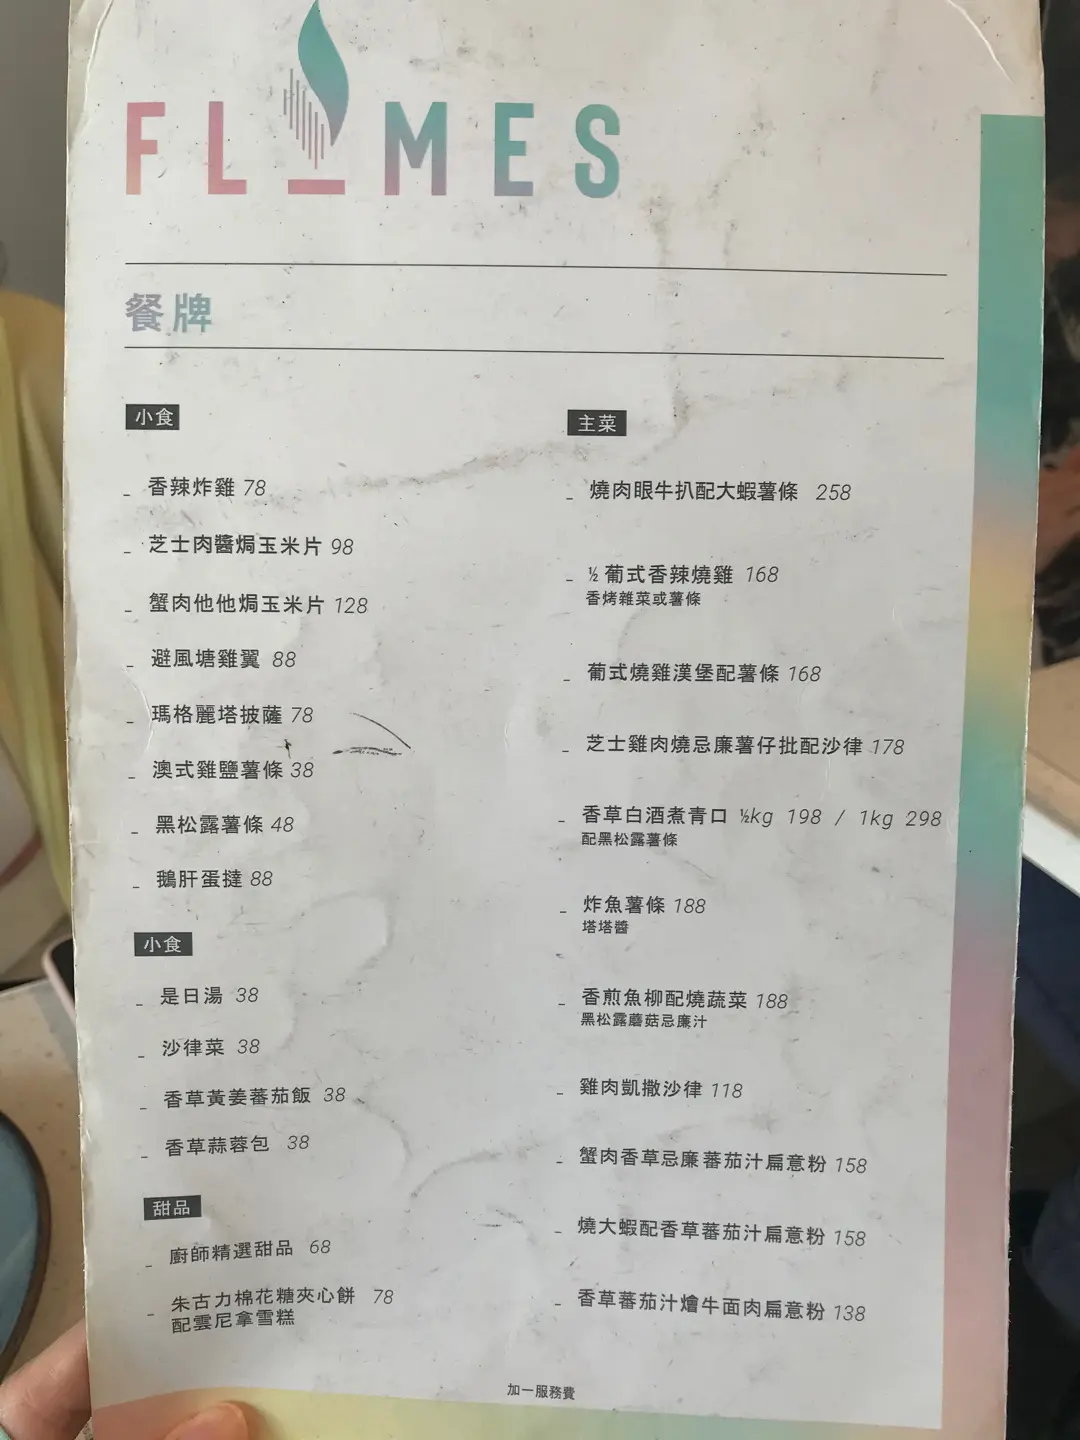 FLAMES
餐牌
小食
香辣炸雞 78
芝士肉醬焗玉米片 98
蟹肉他他焗玉米片 128
避風塘雞翼 88
瑪格麗塔披薩 78
澳式雞鹽薯條 38
黑松露薯條 48
鵝肝蛋撻 88
小食
是日湯 38
沙律菜 38
香草黃姜蕃茄飯 38
香草蒜蓉包 38
甜品
廚師精選甜品 68
朱古力棉花糖夾心餅 78
配雲尼拿雪糕
主菜
燒肉眼牛扒配大蝦薯條 258
½ 葡式香辣燒雞 168
香烤雜菜或薯條
葡式燒雞漢堡配薯條 168
芝士雞肉燒忌廉薯仔批配沙律 178
香草白酒煮青口 ½kg 198 / 1kg 298
配黑松露薯條
炸魚薯條 188
塔塔醬
香煎魚柳配燒蔬菜 188
黑松露蘑菇忌廉汁
雞肉凱撒沙律 118
蟹肉香草忌廉蕃茄汁扁意粉 158
燒大蝦配香草蕃茄汁扁意粉 158
香草蕃茄汁燴牛面肉扁意粉 138
加一服務費